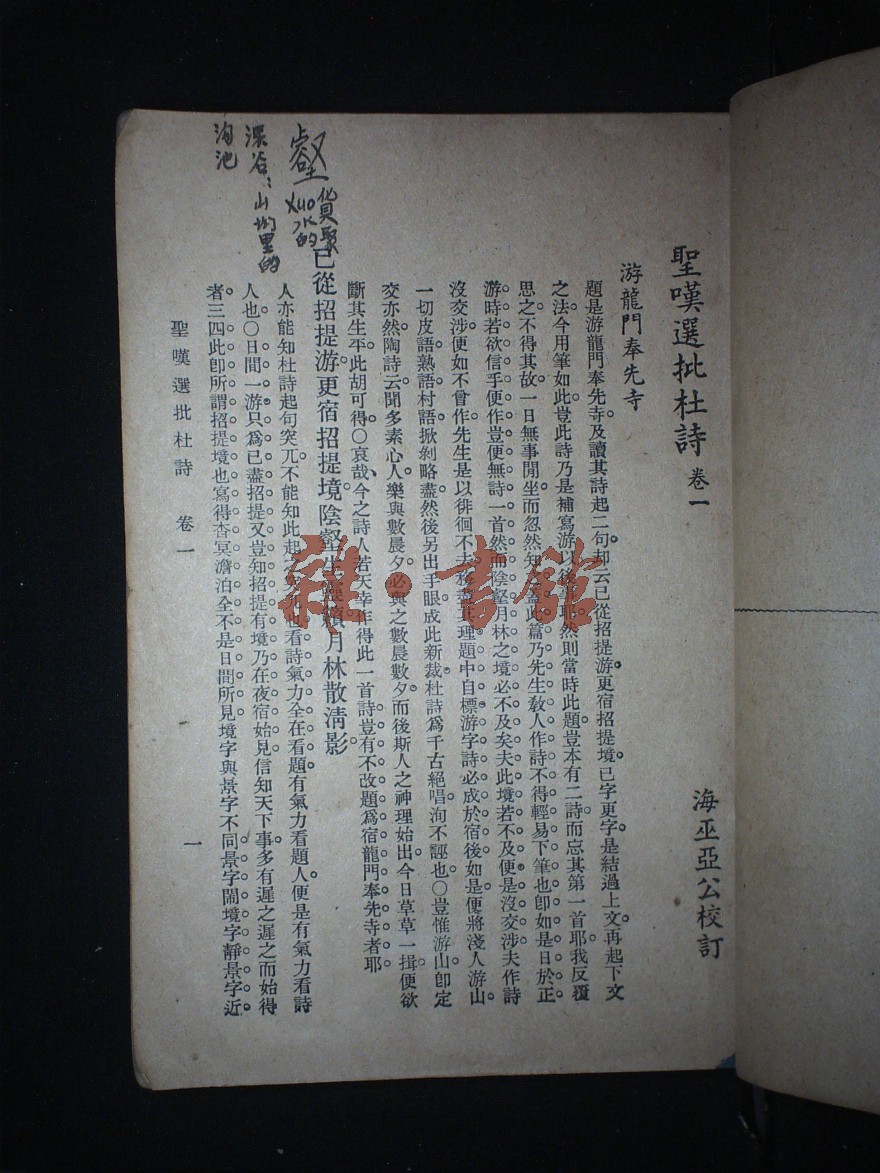 聖嘆選批杜詩 卷一
海巫亞公校訂
游龍門奉先寺
題是游龍門奉先寺及讀其詩起二句却云已從招提游更宿招提境已字更字是結過上文再起下文
之法今用筆如此豈此詩乃是補寫游以後耶然則當時此題豈本有二詩而忘其第一首耶我反覆
思之不得其故一日無事閒坐而忽然知之蓋此篇乃先生敎人作詩不得輕易下筆也卽如是日於正
游時若欲信手便作豈便無詩一首然而陰壑月林之境必不及矣夫此境若不及便是沒交涉夫作詩
沒交涉便如不曾作先生是以徘徊不去務盡其理題中自標游字詩必成於宿後如是便將淺人游山
一切皮語熟語村語掀剝略盡然後另出手眼成此新裁杜詩爲千古絕唱洵不誣也〇豈惟游山卽定
交亦然陶詩云聞多素心人樂與數晨夕必與之數晨數夕而後斯人之神理始出今日草草一揖便欲
斷其生平此胡可得〇哀哉今之詩人若天幸作得此一首詩豈有不改題爲宿龍門奉先寺者耶
已從招提游更宿招提境陰壑生月林散淸影
人亦能知杜詩起句突兀不能知此起突兀也看詩氣力全在看題有氣力看題人便是有氣力看詩
人也〇日間一游只爲已盡招提又豈知招提有境乃在夜宿始見信知天下事多有遲之遲之而始得
者三四此卽所謂招提境也寫得杳冥澹泊全不是日間所見境字與景字不同景字鬧境字靜景字近
聖嘆選批杜詩 卷一
一
壑
xuo
水的
深谷：山坳里的
溝池
雜·書館